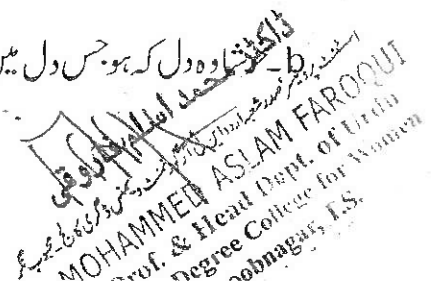 b۔ خوشا وہ دل کہ ہو جس دل میں
ڈاکٹر محمد اسلم فاروقی
MOHAMMED ASLAM FAROQUI
Prof. & Head Dept. of Urdu
Degree College for Women
T.S.